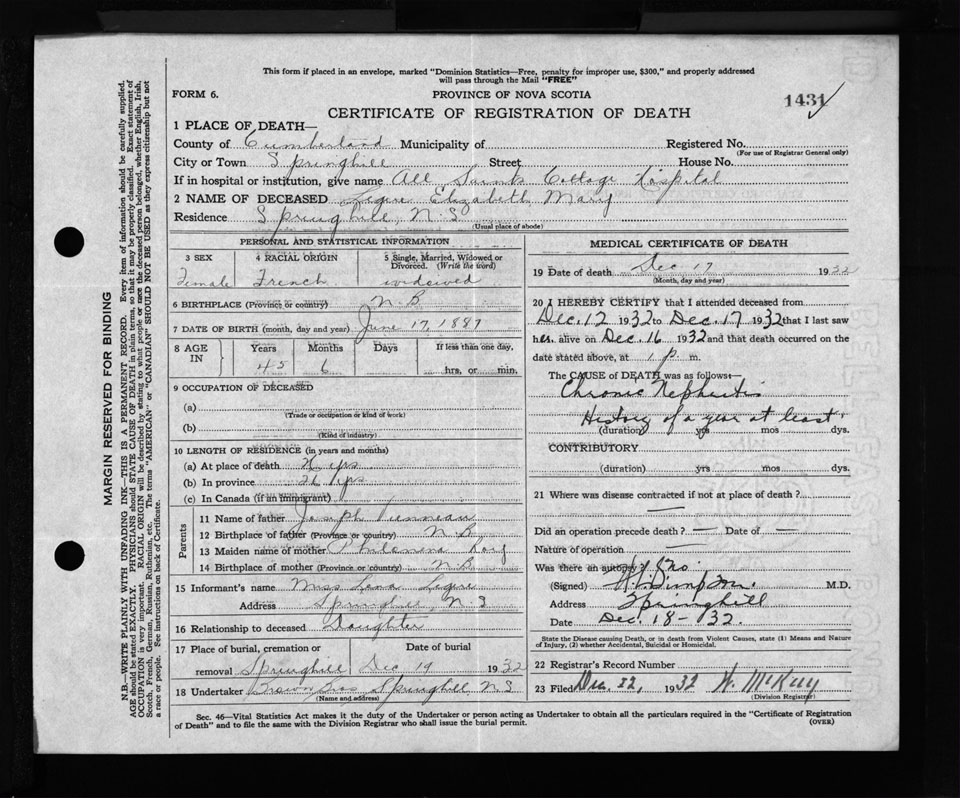 This form if placed in an envelope, marked "Dominion Statistics—Free, penalty for improper use, $300," and properly addressed
will pass through the Mail "FREE"
FORM 6.
PROVINCE OF NOVA SCOTIA
1431
CERTIFICATE OF REGISTRATION OF DEATH
1 PLACE OF DEATH—
County of Cumberland Municipality of Registered No.
(For use of Registrar General only)
City or Town Springhill Street House No.
If in hospital or institution, give name All Saints Cottage Hospital
2 NAME OF DECEASED Legere Elizabeth Mary
Residence Springhill, N.S.
(Usual place of abode)
PERSONAL AND STATISTICAL INFORMATION
3 SEX 4 RACIAL ORIGIN 5 Single, Married, Widowed or Divorced. (Write the word)
Female French widowed
6 BIRTHPLACE (Province or country) N.B
7 DATE OF BIRTH (month, day and year) June 17, 1887
8 AGE IN Years Months Days If less than one day,
45 6 hrs. or min.
9 OCCUPATION OF DECEASED
(a)
(Trade or occupation or kind of work)
(b)
(Kind of industry)
10 LENGTH OF RESIDENCE (in years and months)
(a) At place of death yrs
(b) In province yrs
(c) In Canada (if an immigrant)
Parents
11 Name of father Joseph
12 Birthplace of father (Province or country) N B
13 Maiden name of mother Philamena
14 Birthplace of mother (Province or country) N.B
15 Informant's name Miss Lena Legere
Address Springhill, N S
16 Relationship to deceased Daughter
17 Place of burial, cremation or removal Date of burial
Springhill Dec 19 1932
18 Undertaker Brown Bros Springhill N.S
(Name and address)
MEDICAL CERTIFICATE OF DEATH
19 Date of death Dec 17 1932
(Month, day and year)
20 I HEREBY CERTIFY that I attended deceased from
Dec. 12 1932 to Dec. 17 1932 that I last saw
her alive on Dec. 16 1932 and that death occurred on the
date stated above, at 1 p. m.
The CAUSE of DEATH was as follows:—
Chronic Nephritis
History of a year at least.
(duration) yrs mos dys.
CONTRIBUTORY
(duration) yrs mos dys.
21 Where was disease contracted if not at place of death?
Did an operation precede death? — Date of —
Nature of operation —
Was there an autopsy? No.
(Signed) M.D.
Address Springhill
Date Dec. 18 - 32.
State the Disease causing Death, or in death from Violent Causes, state (1) Means and Nature
of Injury, (2) whether Accidental, Suicidal or Homicidal.
22 Registrar's Record Number
23 Filed Dec. 22, 1932 W. McKay
(Division Registrar)
Sec. 46—Vital Statistics Act makes it the duty of the Undertaker or person acting as Undertaker to obtain all the particulars required in the "Certificate of Registration
of Death" and to file the same with the Division Registrar who shall issue the burial permit.
(OVER)
MARGIN RESERVED FOR BINDING
N.B.—WRITE PLAINLY WITH UNFADING INK—THIS IS A PERMANENT RECORD. Every item of information should be carefully supplied.
AGE should be stated EXACTLY. PHYSICIANS should STATE CAUSE OF DEATH in plain terms, so that it may be properly classified. Exact statement of
OCCUPATION is very important. RACIAL ORIGIN will be described by stating to what people or race the deceased person belonged, whether English, Irish,
Scotch, French, German, Russian, Ruthenian, etc. The terms "AMERICAN" or "CANADIAN" SHOULD NOT BE USED as they express citizenship but not
a race or people. See Instructions on back of Certificate.